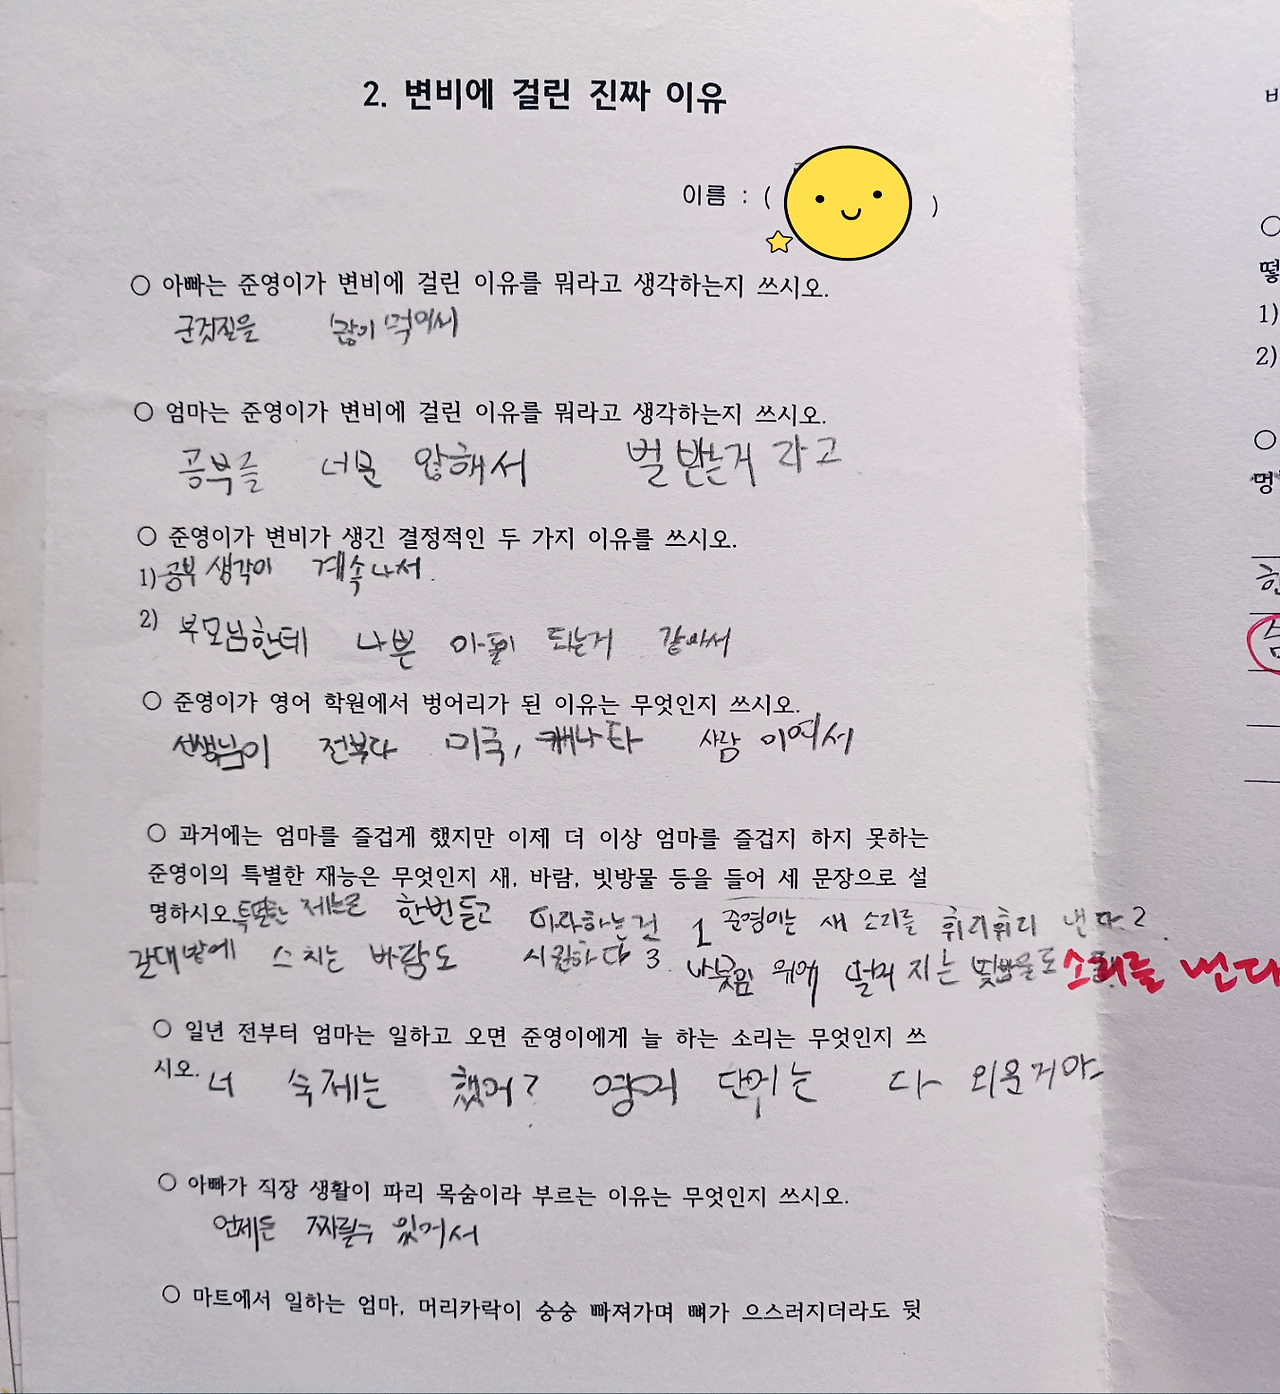 2. 변비에 걸린 진짜 이유
이름 : ( )
○ 아빠는 준영이가 변비에 걸린 이유를 뭐라고 생각하는지 쓰시오.
군것질을 많이 먹어서
○ 엄마는 준영이가 변비에 걸린 이유를 뭐라고 생각하는지 쓰시오.
공부를 너무 않해서 벌 받는거 라고
○ 준영이가 변비가 생긴 결정적인 두 가지 이유를 쓰시오.
1) 공부 생각이 계속 나서.
2) 부모님한테 나쁜 아이 되는거 같아서
○ 준영이가 영어 학원에서 벙어리가 된 이유는 무엇인지 쓰시오.
선생님이 전부다 미국, 캐나다 사람 이여서
○ 과거에는 엄마를 즐겁게 했지만 이제 더 이상 엄마를 즐겁지 하지 못하는
준영이의 특별한 재능은 무엇인지 새, 바람, 빗방물 등을 들어 세 문장으로 설
명하시오. 특별한 한번듣고 따라하는건 1 준영이는 새 소리를 휘리휘리 낸다. 2
갈대밭에 스치는 바람도 시원하다 3 나뭇잎 위에 떨어 지는 빗방울도 소리를 낸다
○ 일년 전부터 엄마는 일하고 오면 준영이에게 늘 하는 소리는 무엇인지 쓰
시오. 너 숙제는 했어? 영어 단어는 다 외운거야
○ 아빠가 직장 생활이 파리 목숨이라 부르는 이유는 무엇인지 쓰시오.
언제든 짜릴수 있어서
○ 마트에서 일하는 엄마, 머리카락이 숭숭 빠져가며 뼈가 으스러지더라도 뒷
○
떻
1)
2)
○
멍